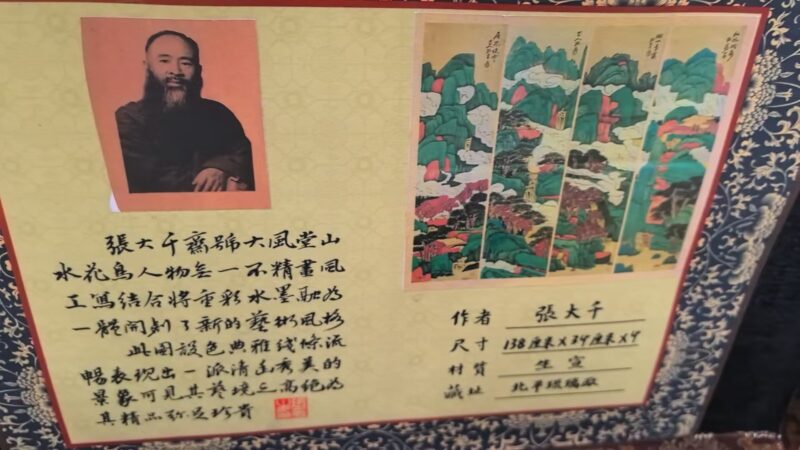 張大千齋號大風堂山
水花鳥人物無一不精畫風
工寫結合將重彩水墨融為
一體開創了新的藝術風格
此圖設色典雅綫條流
暢表現出一派清幽秀美的
景象可見其藝境之高絕為
真精品弥足珍貴
作者 張大千
尺寸 138厘米X34厘米X4
材質 生宣
藏址 北平琉璃廠